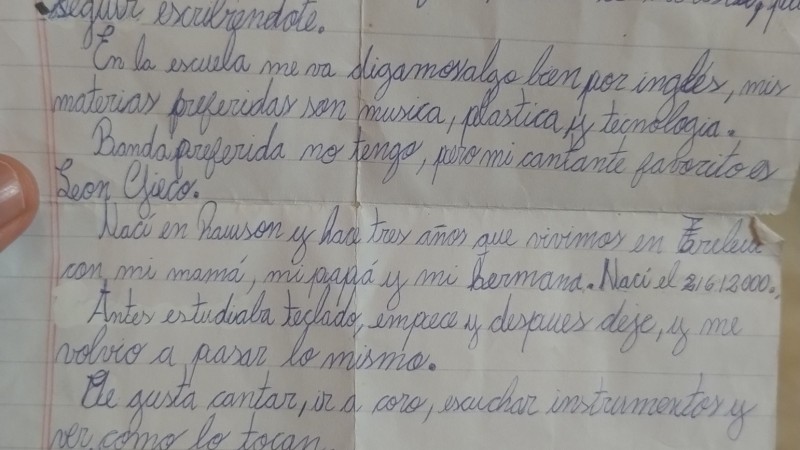 seguir escribendote.
En la escuela me va digamos algo bien por inglés, mis
materias preferidas son musica, plastica y tecnologia.
Banda preferida no tengo, pero mi cantante favorito es
Leon Gieco.
Nací en Rawson y hace tres años que vivimos en Trelew
con mi mamá, mi papá y mi hermana. Nací el 21612000.
Antes estudiaba teclado, empece y despues deje, y me
volvio a pasar lo mismo.
Me gusta cantar, ir a coro, escuchar instrumentos y
ver como lo tocan